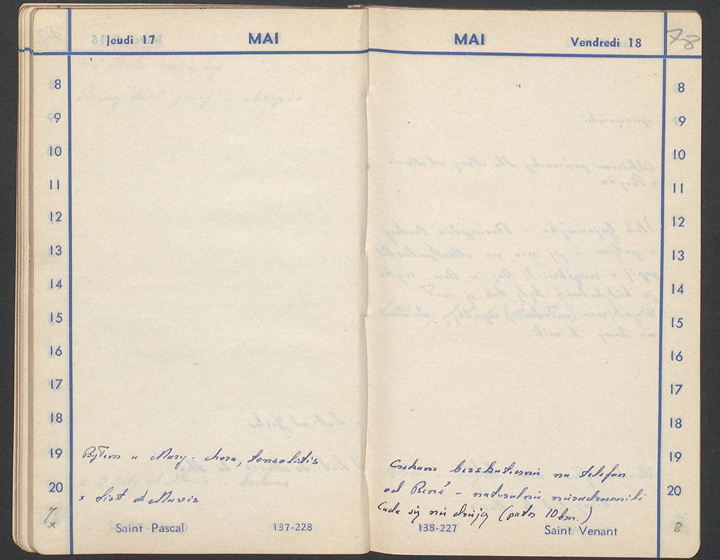 Jeudi 17
MAI
8
9
10
11
12
13
14
15
16
17
18
19
Byłem u Mary - chora, tonsolitis
20
x List od Marii
7
x
Saint Pascal
137-228
MAI
Vendredi 18
8
9
10
11
12
13
14
15
16
17
18
19
20
Czekam bezskutecznie na telefon
od René - naturalnie
Cuda się nie dzieją (patrz 10 bm.)
138-227
Saint Venant
8